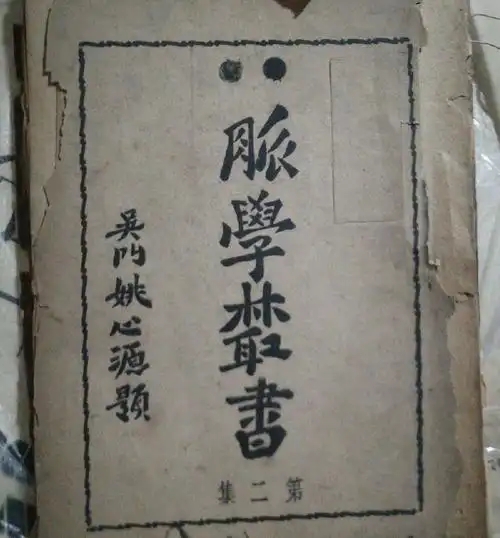 脈學叢書
吳門姚心源題
第二集